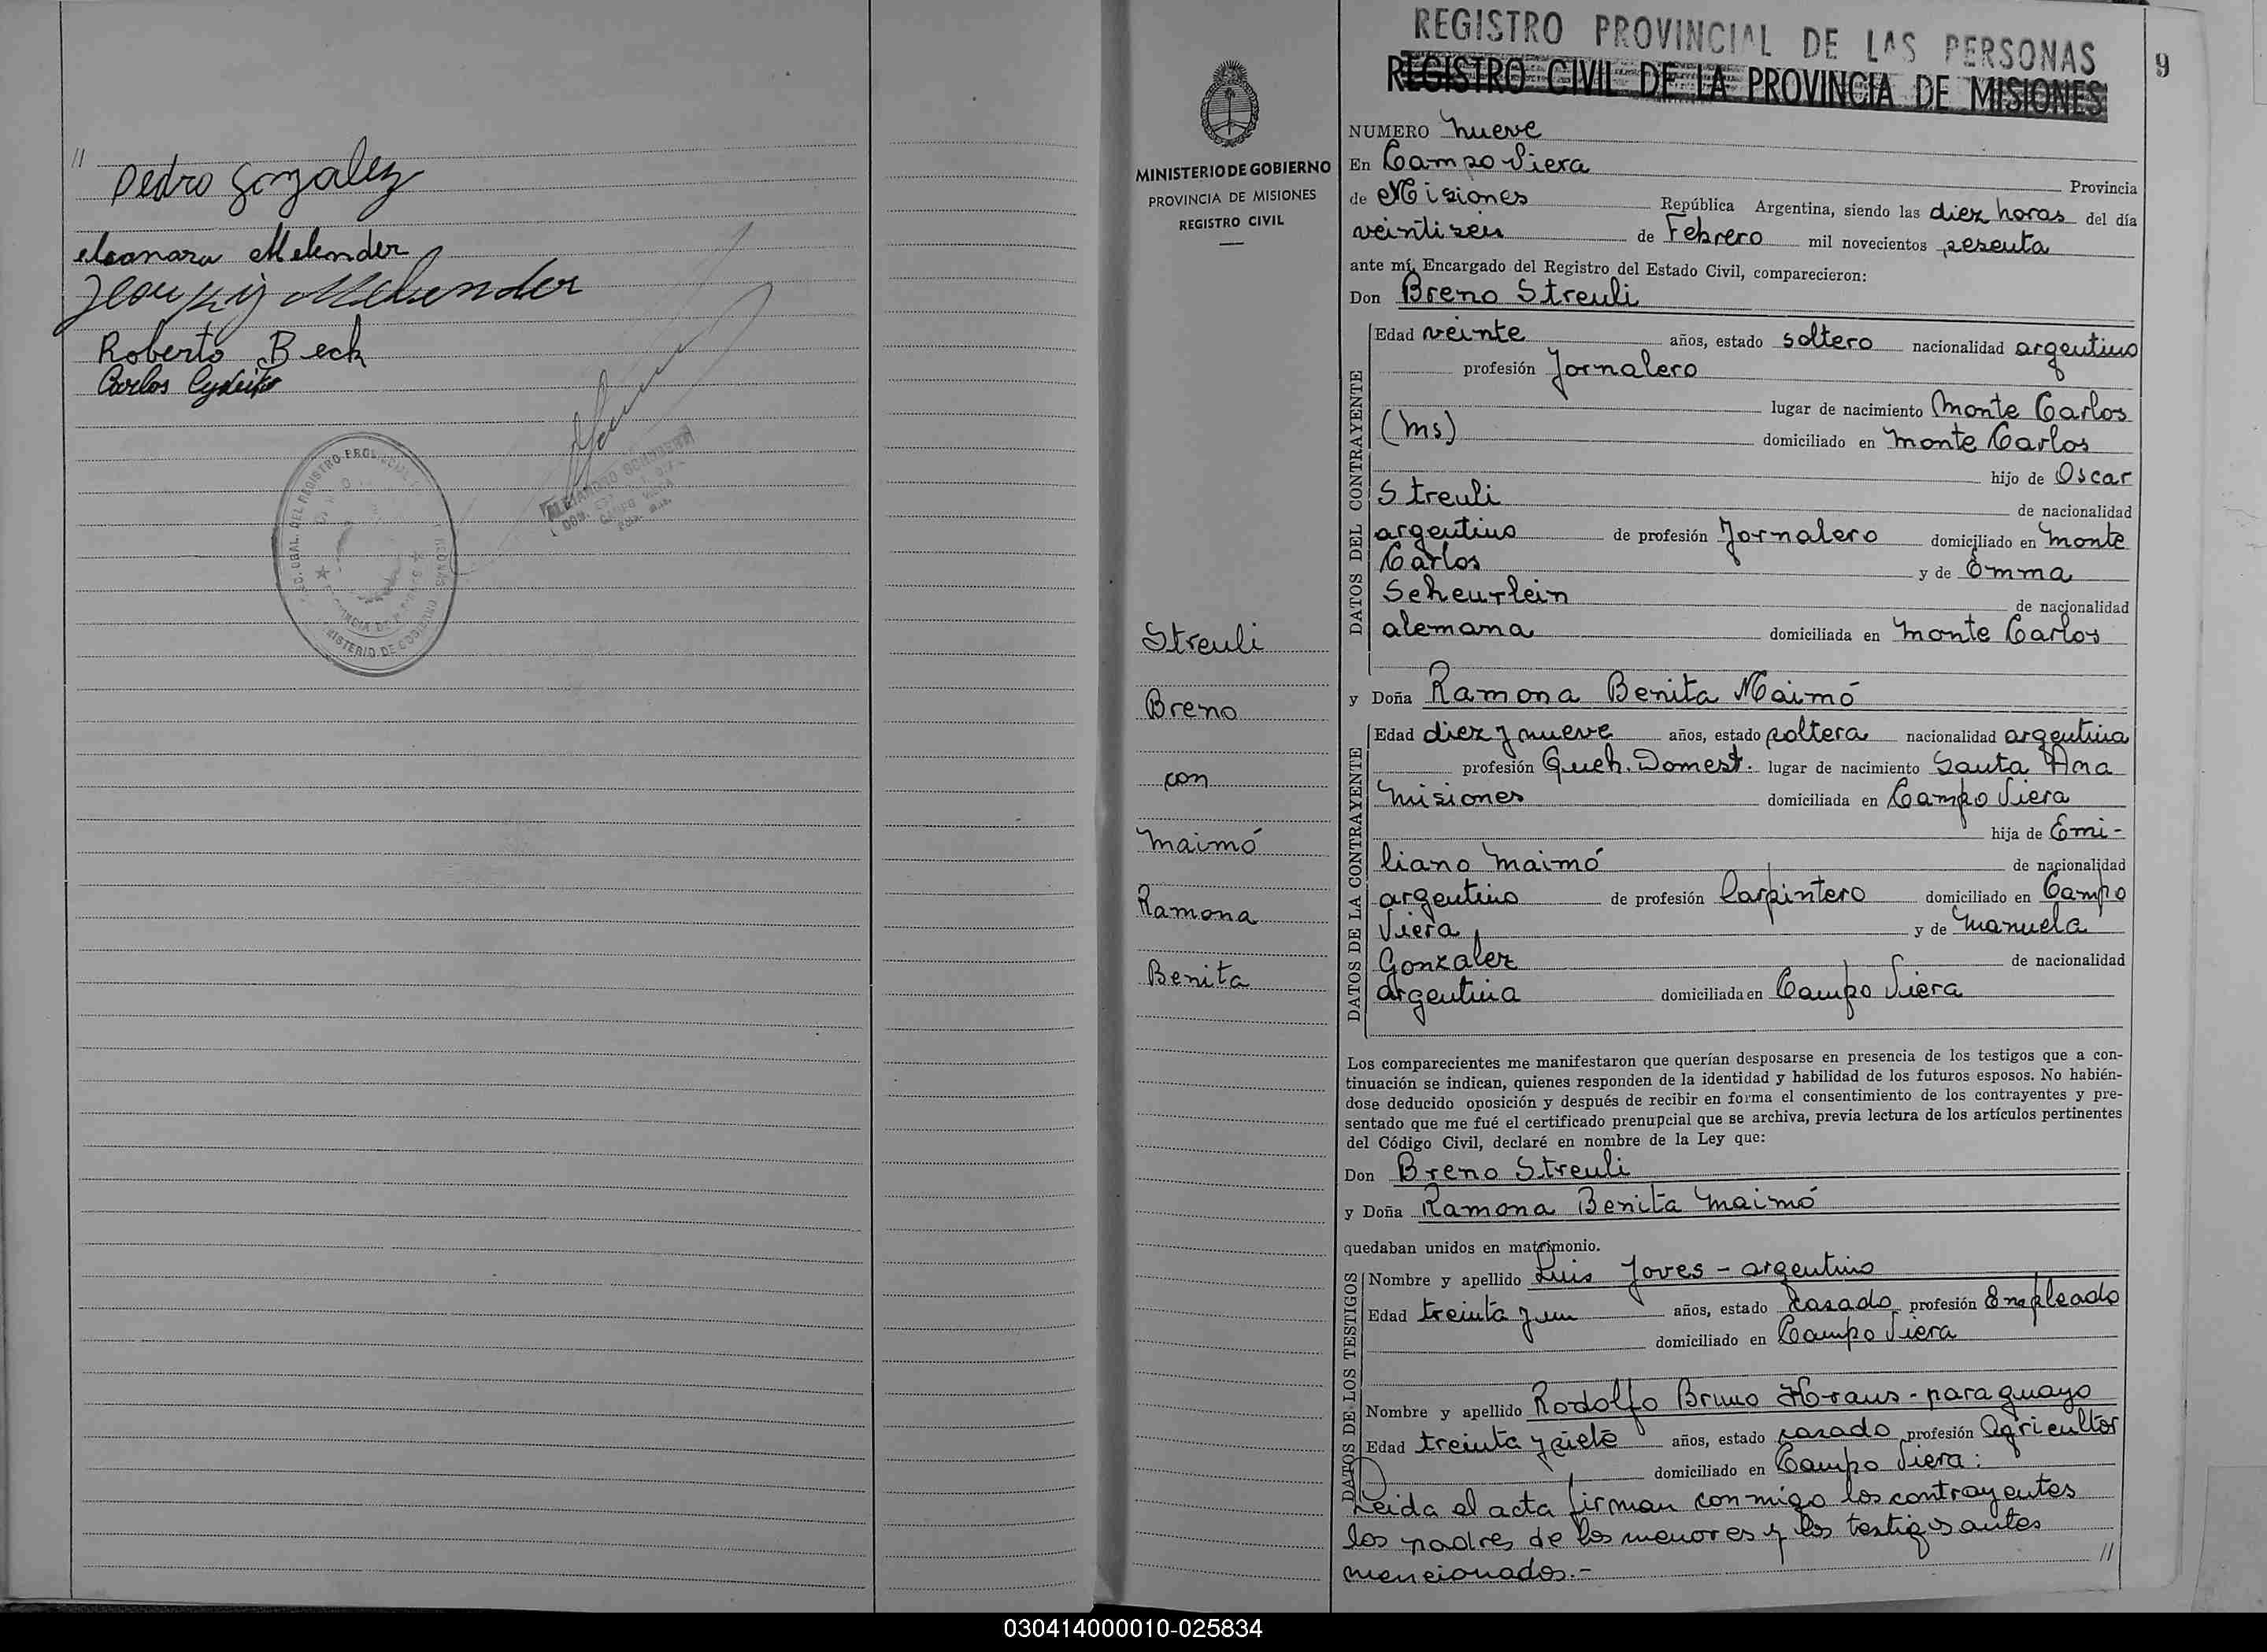 //
Pedro Gonzalez
eleonara Melender
Melender
Roberto Beck
Carlos
MINISTERIO DE GOBIERNO
PROVINCIA DE MISIONES
REGISTRO CIVIL
Streuli
Breno
con
Maimó
Ramona
Benita
REGISTRO PROVINCIAL DE LAS PERSONAS
9
REGISTRO CIVIL DE LA PROVINCIA DE MISIONES
NUMERO nueve
En Campo Viera Provincia
de Misiones República Argentina, siendo las diez horas del día
veintiseis de Febrero mil novecientos sesenta
ante mí, Encargado del Registro del Estado Civil, comparecieron:
Don Breno Streuli
DATOS DEL CONTRAYENTE
Edad veinte años, estado soltero nacionalidad argentino
profesión Jornalero
lugar de nacimiento Monte Carlos
(Ms) domiciliado en Monte Carlos
hijo de Oscar
Streuli de nacionalidad
argentino de profesión Jornalero domiciliado en Monte
Carlos y de Emma
Scheurlein de nacionalidad
alemana domiciliada en Monte Carlos
y Doña Ramona Benita Maimó
DATOS DE LA CONTRAYENTE
Edad diez y nueve años, estado soltera nacionalidad argentina
profesión Queh. Domest. lugar de nacimiento Santa Ana
Misiones domiciliada en Campo Viera
hija de Emi-
liano Maimó de nacionalidad
argentino de profesión Carpintero domiciliado en Campo
Viera y de Manuela
Gonzalez de nacionalidad
argentina domiciliada en Campo Viera
Los comparecientes me manifestaron que querían desposarse en presencia de los testigos que a con-
tinuación se indican, quienes responden de la identidad y habilidad de los futuros esposos. No habién-
dose deducido oposición y después de recibir en forma el consentimiento de los contrayentes y pre-
sentado que me fué el certificado prenupcial que se archiva, previa lectura de los artículos pertinentes
del Código Civil, declaré en nombre de la Ley que:
Don Breno Streuli
y Doña Ramona Benita Maimó
quedaban unidos en matrimonio.
DATOS DE LOS TESTIGOS
Nombre y apellido Luis Joves - argentino
Edad treinta y un años, estado casado profesión Empleado
domiciliado en Campo Viera
Nombre y apellido Rodolfo Bruno Kraus - paraguayo
Edad treinta y siete años, estado casado profesión Agricultor
domiciliado en Campo Viera:
Leida el acta firman conmigo los contrayentes
los padres de los menores y los testigos antes
mencionados.- //
030414000010-025834